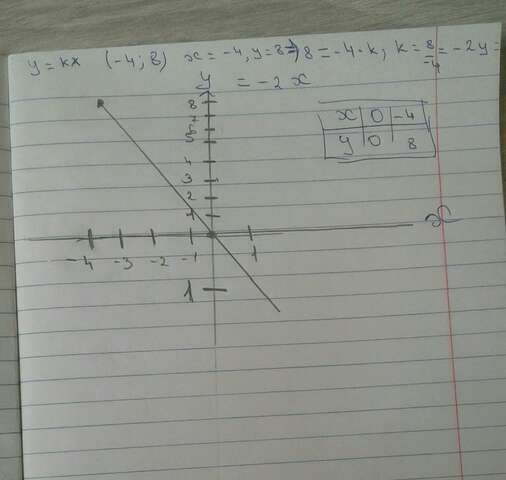 y = kx (-4; 8) x = -4, y = 8 => 8 = -4·k; k = 8/-4 = -2 y =
= -2x
y
x 0 -4
y 0 8
8
7
6
5
4
3
2
1
x
-4 -3 -2 -1 1
1